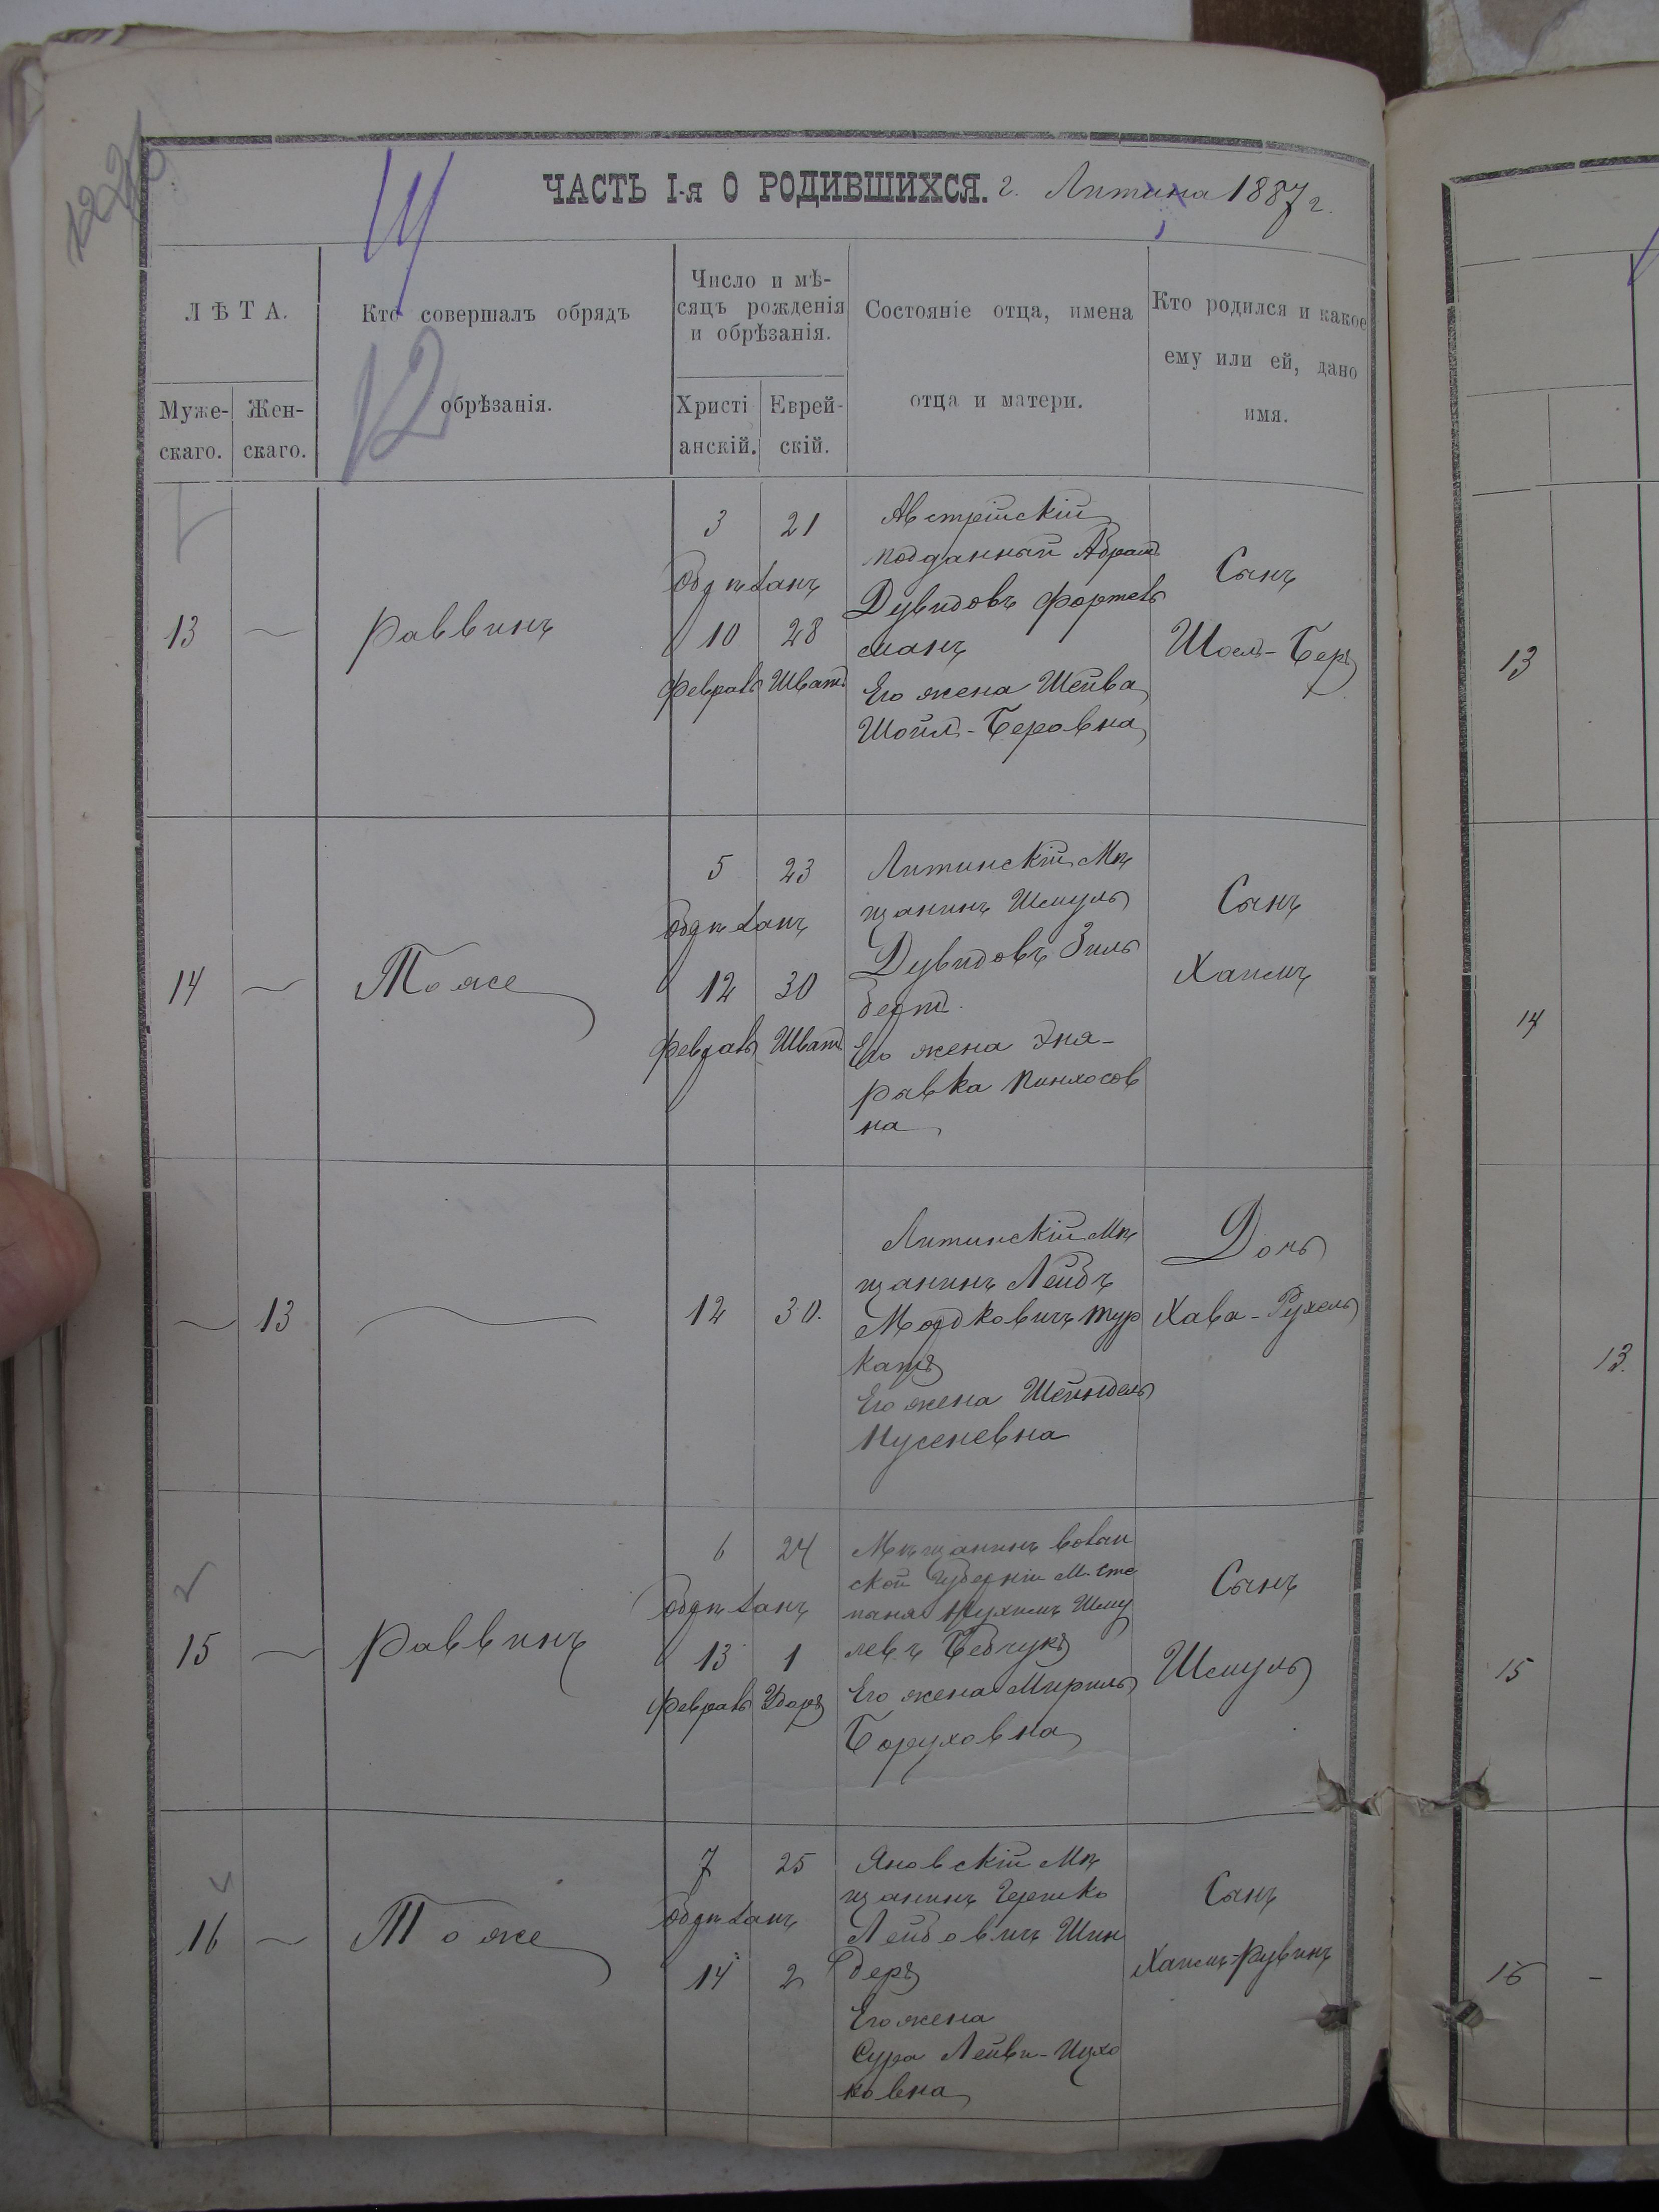 ЧАСТЬ I-я О РОДИВШИХСЯ. г. Литина 1887 г.
12
ЛѢТА.
Муже-
скаго.
Жен-
скаго.
Кто совершалъ обрядъ
обрѣзанія.
Число и мѣ-
сяцъ рожденія
и обрѣзанія.
Христі
анскій.
Еврей-
скій.
Состояніе отца, имена
отца и матери.
Кто родился и какое
ему или ей, дано
имя.
13 —
Раввинъ
3 21
10 28
Февраль Шватъ
Австрійскій
подданный Абрамъ
Дувидовъ Фортель
манъ
Его жена Шейва
Шойл-Беровна
Сынъ
Шоел-Беръ
14 —
Тоже
5 23
12 30
Февраль Шватъ
Литинскій Мѣ
щанинъ Шмуль
Дувидовъ Зиль
бертъ.
Его жена Эня-
Рывка Пинхосов
на
Сынъ
Хаимъ
— 13
—
12 30.
Литинскій Мѣ
щанинъ Лейбъ
Мордковичъ Тур
Его жена Шейндель
Нусеневна
Дочь
Хава-Рухель
15 —
Раввинъ
6 24
13 1
Февраль Удоръ
Мѣщанинъ Волын
ской Губерніи М. Сте
паня Нухимъ Шму
левъ Бебчукъ
Его жена Мириль
Боруховна
Сынъ
Шмуль
16 —
Тоже
7 25
14 2
Яновскій Мѣ
щанинъ Гершко
Лейбовичъ Шин
деръ
Его жена
Сура Лейви-Ицхо
ковна
Сынъ
Хаимъ-Рувинъ
13
14
13.
15
16 -